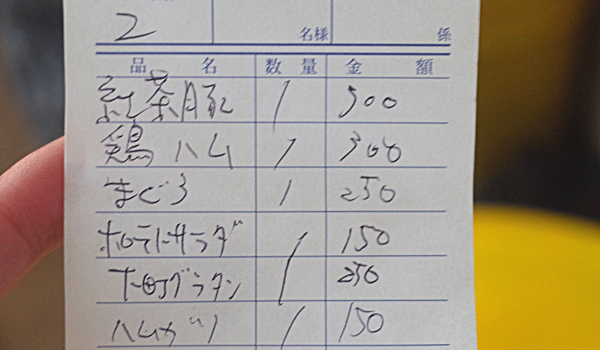 2 名様 係
品名 数量 金額
紅茶豚 1 300
鶏ハム 1 300
まぐろ 1 250
ポテトサラダ 1 150
グラタン 250
ハムカツ 1 150